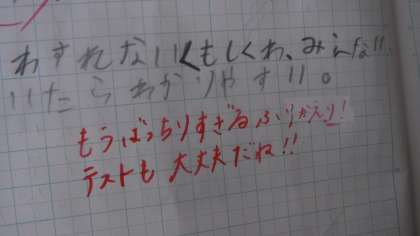 わすれないくもしくわ、みらない
いたらわかりやすい。
もうばっちりすぎるふりかえり!
テストも大丈夫だね!!